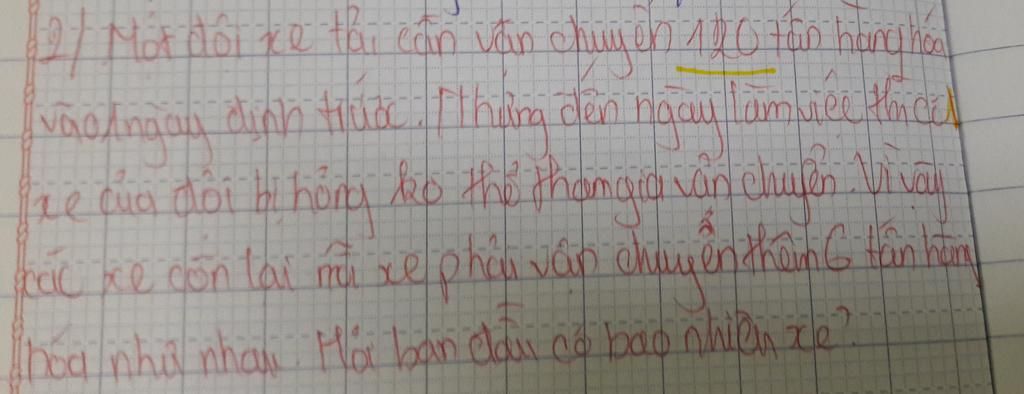 2/ Một đội xe tải cần vận chuyển 120 tấn hàng hóa
vào 1 ngày định trước. Nhưng đến ngày làm việc thì có 1
xe của đội bị hỏng ko thể tham gia vận chuyển. Vì vậy
các xe còn lại mỗi xe phải vận chuyển thêm 6 tấn hàng
hóa như nhau. Hỏi ban đầu có bao nhiêu xe?